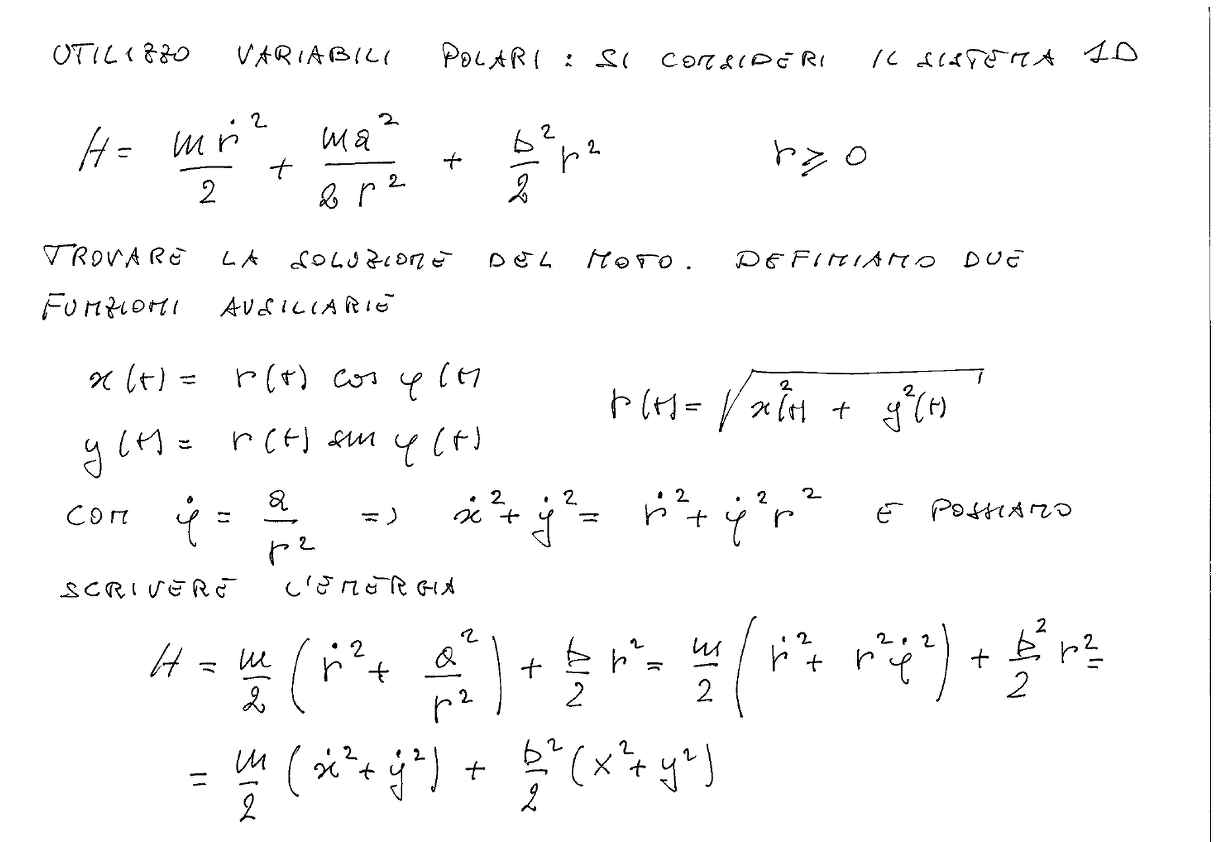 UTILIZZO VARIABILI POLARI : SI CONSIDERI IL SISTEMA 1D
H = mṙ²/2 + ma²/2r² + b²/2 r² r ⩾ 0
TROVARE LA SOLUZIONE DEL MOTO. DEFINIAMO DUE
FUNZIONI AUSILIARIE
x(t) = r(t) cos φ(t)
r(t) = √(x²(t) + y²(t))
y(t) = r(t) sin φ(t)
CON φ̇ = a/r² => ẋ² + ẏ² = ṙ² + φ̇²r² E POSSIAMO
SCRIVERE L'ENERGIA
H = m/2 (ṙ² + a²/r²) + b/2 r² = m/2 (ṙ² + r²φ̇²) + b²/2 r² =
= m/2 (ẋ² + ẏ²) + b²/2 (x² + y²)